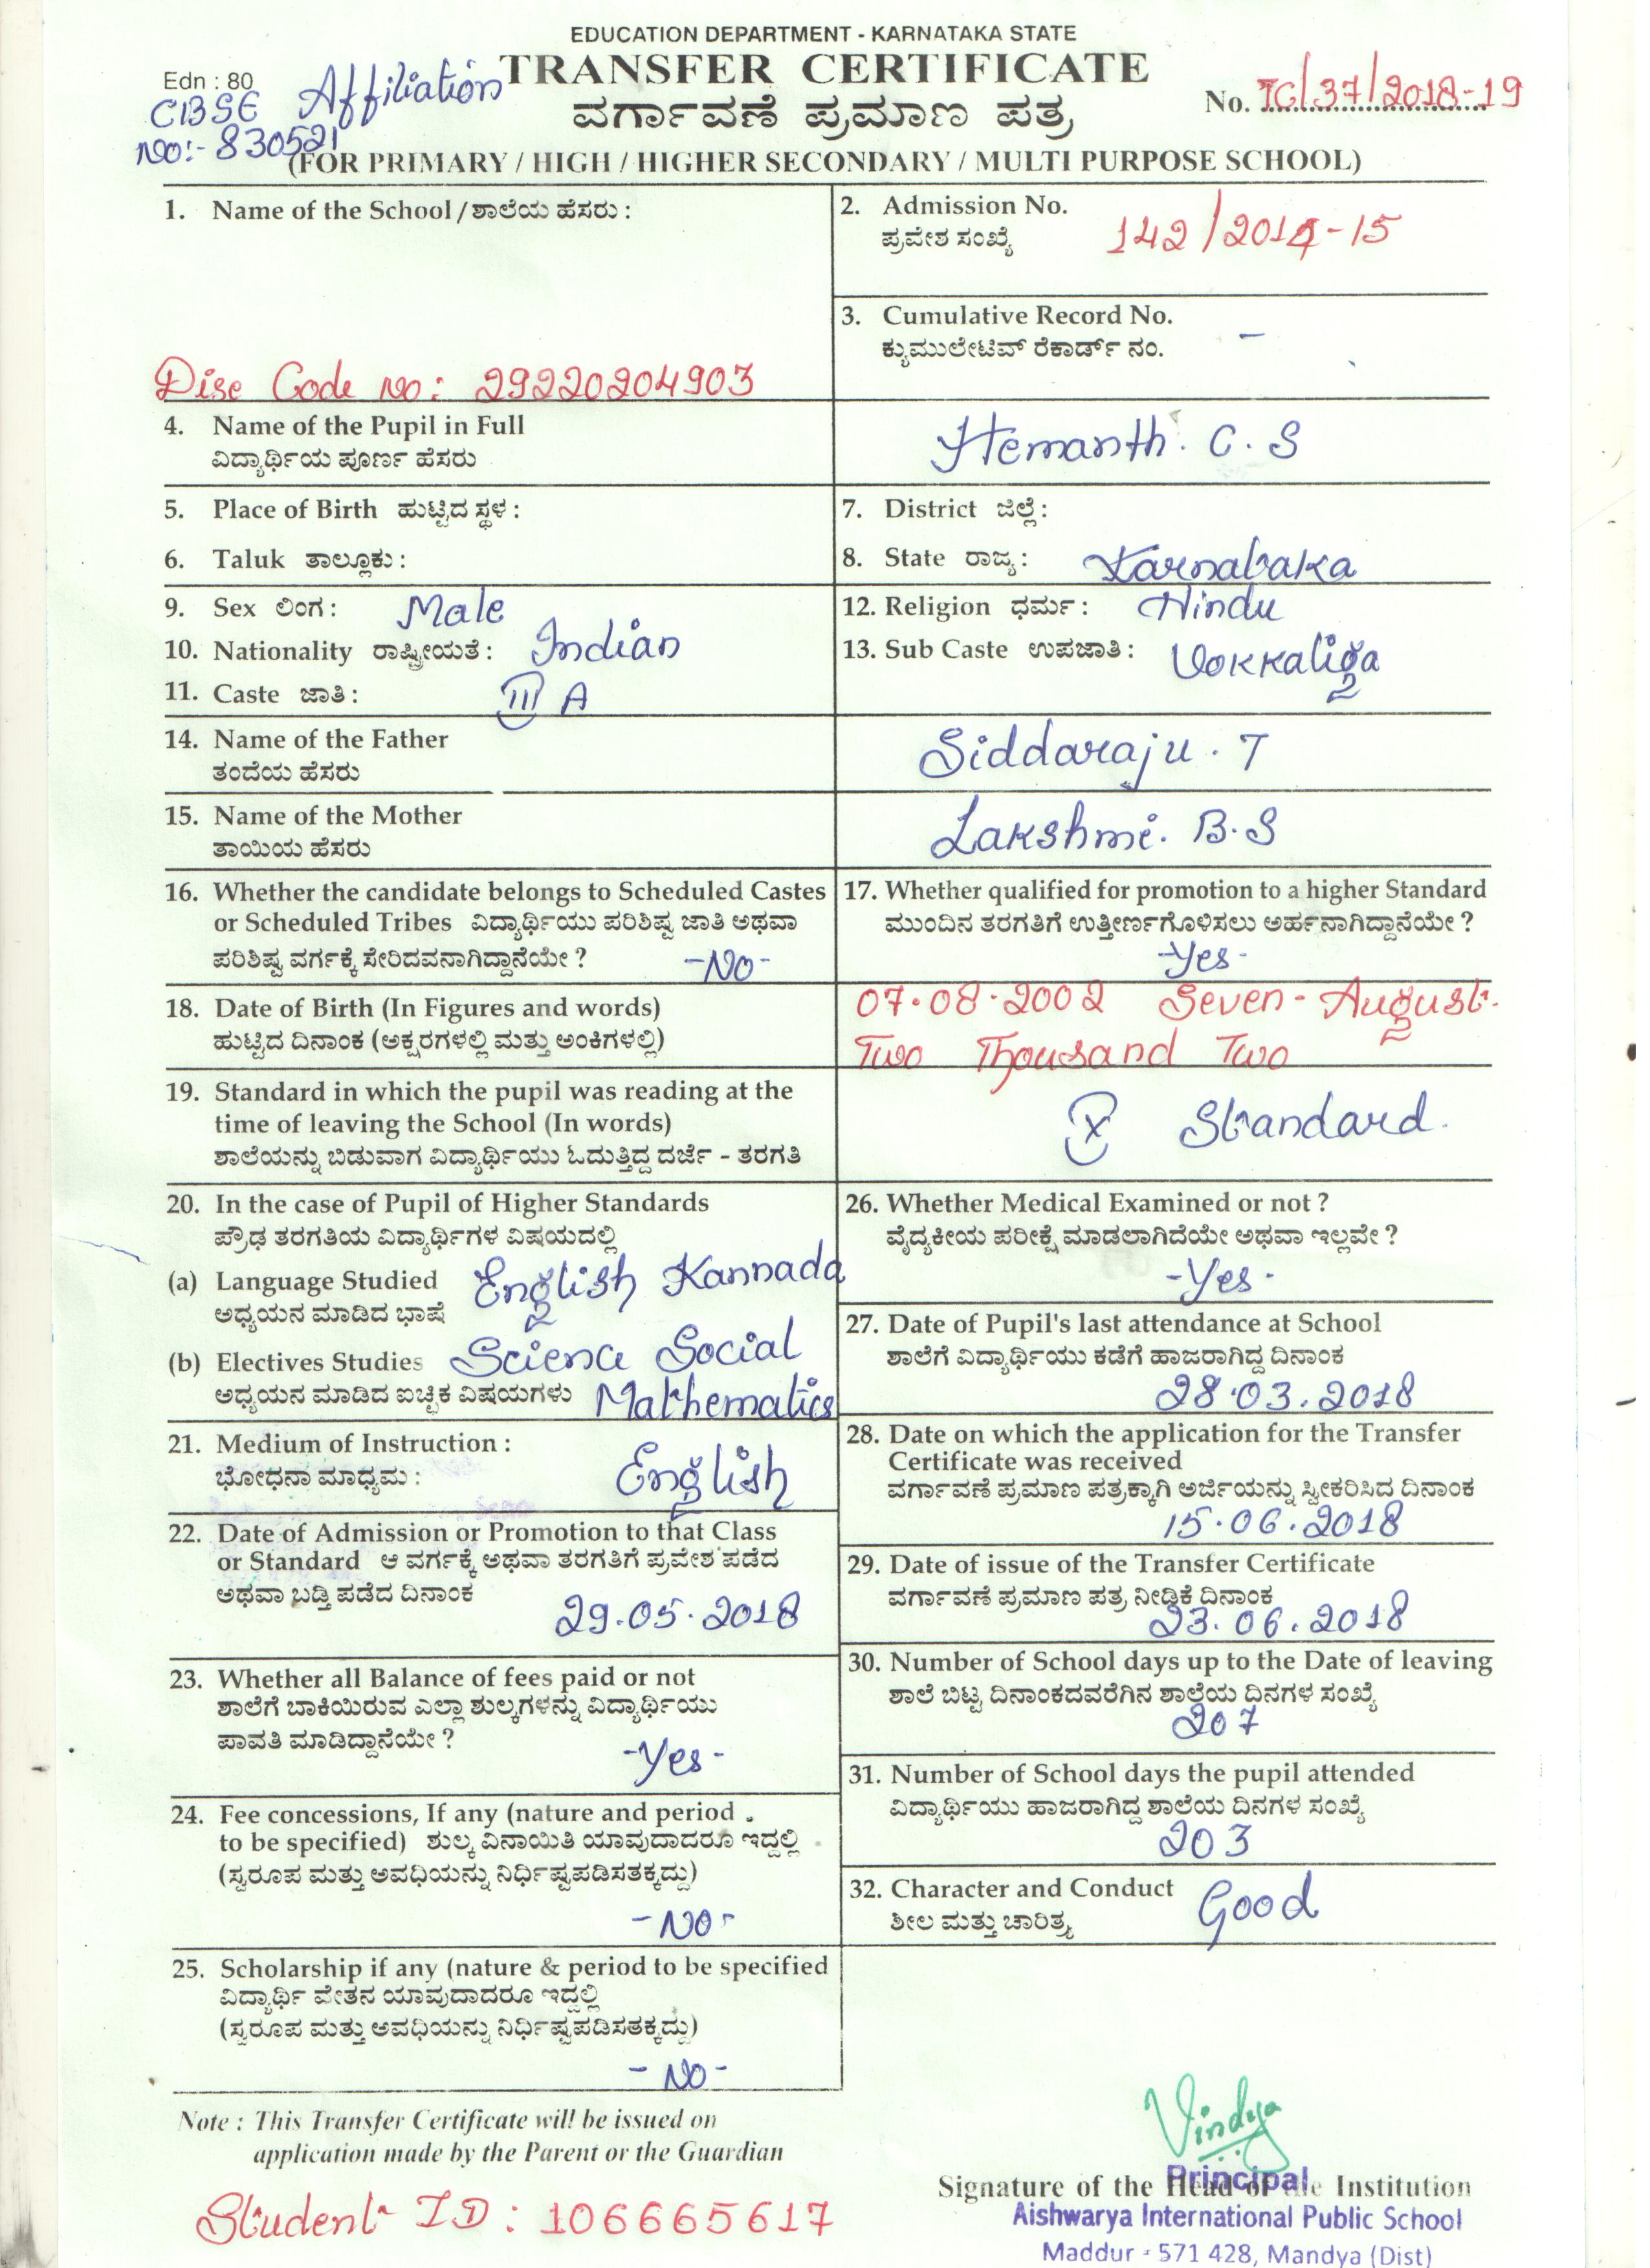 EDUCATION DEPARTMENT - KARNATAKA STATE
Edn : 80
TRANSFER CERTIFICATE
CBSE Affiliation
No:- 830521
ವರ್ಗಾವಣೆ ಪ್ರಮಾಣ ಪತ್ರ
No. TC/37/2018-19
(FOR PRIMARY / HIGH / HIGHER SECONDARY / MULTI PURPOSE SCHOOL)
1. Name of the School / ಶಾಲೆಯ ಹೆಸರು :
Dise Code no: 29220204903
2. Admission No. 142/2014-15
ಪ್ರವೇಶ ಸಂಖ್ಯೆ
3. Cumulative Record No. -
ಕ್ಯುಮುಲೇಟಿವ್ ರೆಕಾರ್ಡ್ ನಂ.
4. Name of the Pupil in Full Hemanth. C. S
ವಿದ್ಯಾರ್ಥಿಯ ಪೂರ್ಣ ಹೆಸರು
5. Place of Birth ಹುಟ್ಟಿದ ಸ್ಥಳ :
6. Taluk ತಾಲ್ಲೂಕು :
7. District ಜಿಲ್ಲೆ :
8. State ರಾಜ್ಯ : Karnataka
9. Sex ಲಿಂಗ : Male
10. Nationality ರಾಷ್ಟ್ರೀಯತೆ : Indian
11. Caste ಜಾತಿ : III A
12. Religion ಧರ್ಮ : Hindu
13. Sub Caste ಉಪಜಾತಿ : Vokkaliga
14. Name of the Father Siddaraju. T
ತಂದೆಯ ಹೆಸರು
15. Name of the Mother Lakshmi. B.S
ತಾಯಿಯ ಹೆಸರು
16. Whether the candidate belongs to Scheduled Castes
or Scheduled Tribes ವಿದ್ಯಾರ್ಥಿಯು ಪರಿಶಿಷ್ಟ ಜಾತಿ ಅಥವಾ
ಪರಿಶಿಷ್ಟ ವರ್ಗಕ್ಕೆ ಸೇರಿದವನಾಗಿದ್ದಾನೆಯೇ ? -No-
17. Whether qualified for promotion to a higher Standard
ಮುಂದಿನ ತರಗತಿಗೆ ಉತ್ತೀರ್ಣಗೊಳಿಸಲು ಅರ್ಹನಾಗಿದ್ದಾನೆಯೇ ?
-Yes-
18. Date of Birth (In Figures and words) 07.08.2002 Seven-August.
ಹುಟ್ಟಿದ ದಿನಾಂಕ (ಅಕ್ಷರಗಳಲ್ಲಿ ಮತ್ತು ಅಂಕಿಗಳಲ್ಲಿ) Two Thousand Two
19. Standard in which the pupil was reading at the
time of leaving the School (In words) X Standard.
ಶಾಲೆಯನ್ನು ಬಿಡುವಾಗ ವಿದ್ಯಾರ್ಥಿಯು ಓದುತ್ತಿದ್ದ ದರ್ಜೆ - ತರಗತಿ
20. In the case of Pupil of Higher Standards
ಪ್ರೌಢ ತರಗತಿಯ ವಿದ್ಯಾರ್ಥಿಗಳ ವಿಷಯದಲ್ಲಿ
(a) Language Studied English Kannada
ಅಧ್ಯಯನ ಮಾಡಿದ ಭಾಷೆ
(b) Electives Studies Science Social
ಅಧ್ಯಯನ ಮಾಡಿದ ಐಚ್ಛಿಕ ವಿಷಯಗಳು Mathematics
21. Medium of Instruction : English
ಭೋಧನಾ ಮಾಧ್ಯಮ :
22. Date of Admission or Promotion to that Class
or Standard ಆ ವರ್ಗಕ್ಕೆ ಅಥವಾ ತರಗತಿಗೆ ಪ್ರವೇಶ ಪಡೆದ
ಅಥವಾ ಬಡ್ತಿ ಪಡೆದ ದಿನಾಂಕ 29.05.2018
23. Whether all Balance of fees paid or not
ಶಾಲೆಗೆ ಬಾಕಿಯಿರುವ ಎಲ್ಲಾ ಶುಲ್ಕಗಳನ್ನು ವಿದ್ಯಾರ್ಥಿಯು
ಪಾವತಿ ಮಾಡಿದ್ದಾನೆಯೇ ? -Yes-
24. Fee concessions, If any (nature and period
to be specified) ಶುಲ್ಕ ವಿನಾಯಿತಿ ಯಾವುದಾದರೂ ಇದ್ದಲ್ಲಿ
(ಸ್ವರೂಪ ಮತ್ತು ಅವಧಿಯನ್ನು ನಿರ್ಧಿಷ್ಟಪಡಿಸತಕ್ಕದ್ದು)
-No-
25. Scholarship if any (nature & period to be specified
ವಿದ್ಯಾರ್ಥಿ ವೇತನ ಯಾವುದಾದರೂ ಇದ್ದಲ್ಲಿ
(ಸ್ವರೂಪ ಮತ್ತು ಅವಧಿಯನ್ನು ನಿರ್ಧಿಷ್ಟಪಡಿಸತಕ್ಕದ್ದು)
-No-
26. Whether Medical Examined or not ?
ವೈದ್ಯಕೀಯ ಪರೀಕ್ಷೆ ಮಾಡಲಾಗಿದೆಯೇ ಅಥವಾ ಇಲ್ಲವೇ ?
-Yes-
27. Date of Pupil's last attendance at School
ಶಾಲೆಗೆ ವಿದ್ಯಾರ್ಥಿಯು ಕಡೆಗೆ ಹಾಜರಾಗಿದ್ದ ದಿನಾಂಕ
28.03.2018
28. Date on which the application for the Transfer
Certificate was received
ವರ್ಗಾವಣೆ ಪ್ರಮಾಣ ಪತ್ರಕ್ಕಾಗಿ ಅರ್ಜಿಯನ್ನು ಸ್ವೀಕರಿಸಿದ ದಿನಾಂಕ
15.06.2018
29. Date of issue of the Transfer Certificate
ವರ್ಗಾವಣೆ ಪ್ರಮಾಣ ಪತ್ರ ನೀಡಿಕೆ ದಿನಾಂಕ
23.06.2018
30. Number of School days up to the Date of leaving
ಶಾಲೆ ಬಿಟ್ಟ ದಿನಾಂಕದವರೆಗಿನ ಶಾಲೆಯ ದಿನಗಳ ಸಂಖ್ಯೆ
207
31. Number of School days the pupil attended
ವಿದ್ಯಾರ್ಥಿಯು ಹಾಜರಾಗಿದ್ದ ಶಾಲೆಯ ದಿನಗಳ ಸಂಖ್ಯೆ
203
32. Character and Conduct Good
ಶೀಲ ಮತ್ತು ಚಾರಿತ್ರ್ಯ
Note : This Transfer Certificate will be issued on
application made by the Parent or the Guardian
Student ID : 106665617
Vindya
Principal
Signature of the Head of the Institution
Aishwarya International Public School
Maddur - 571 428, Mandya (Dist)